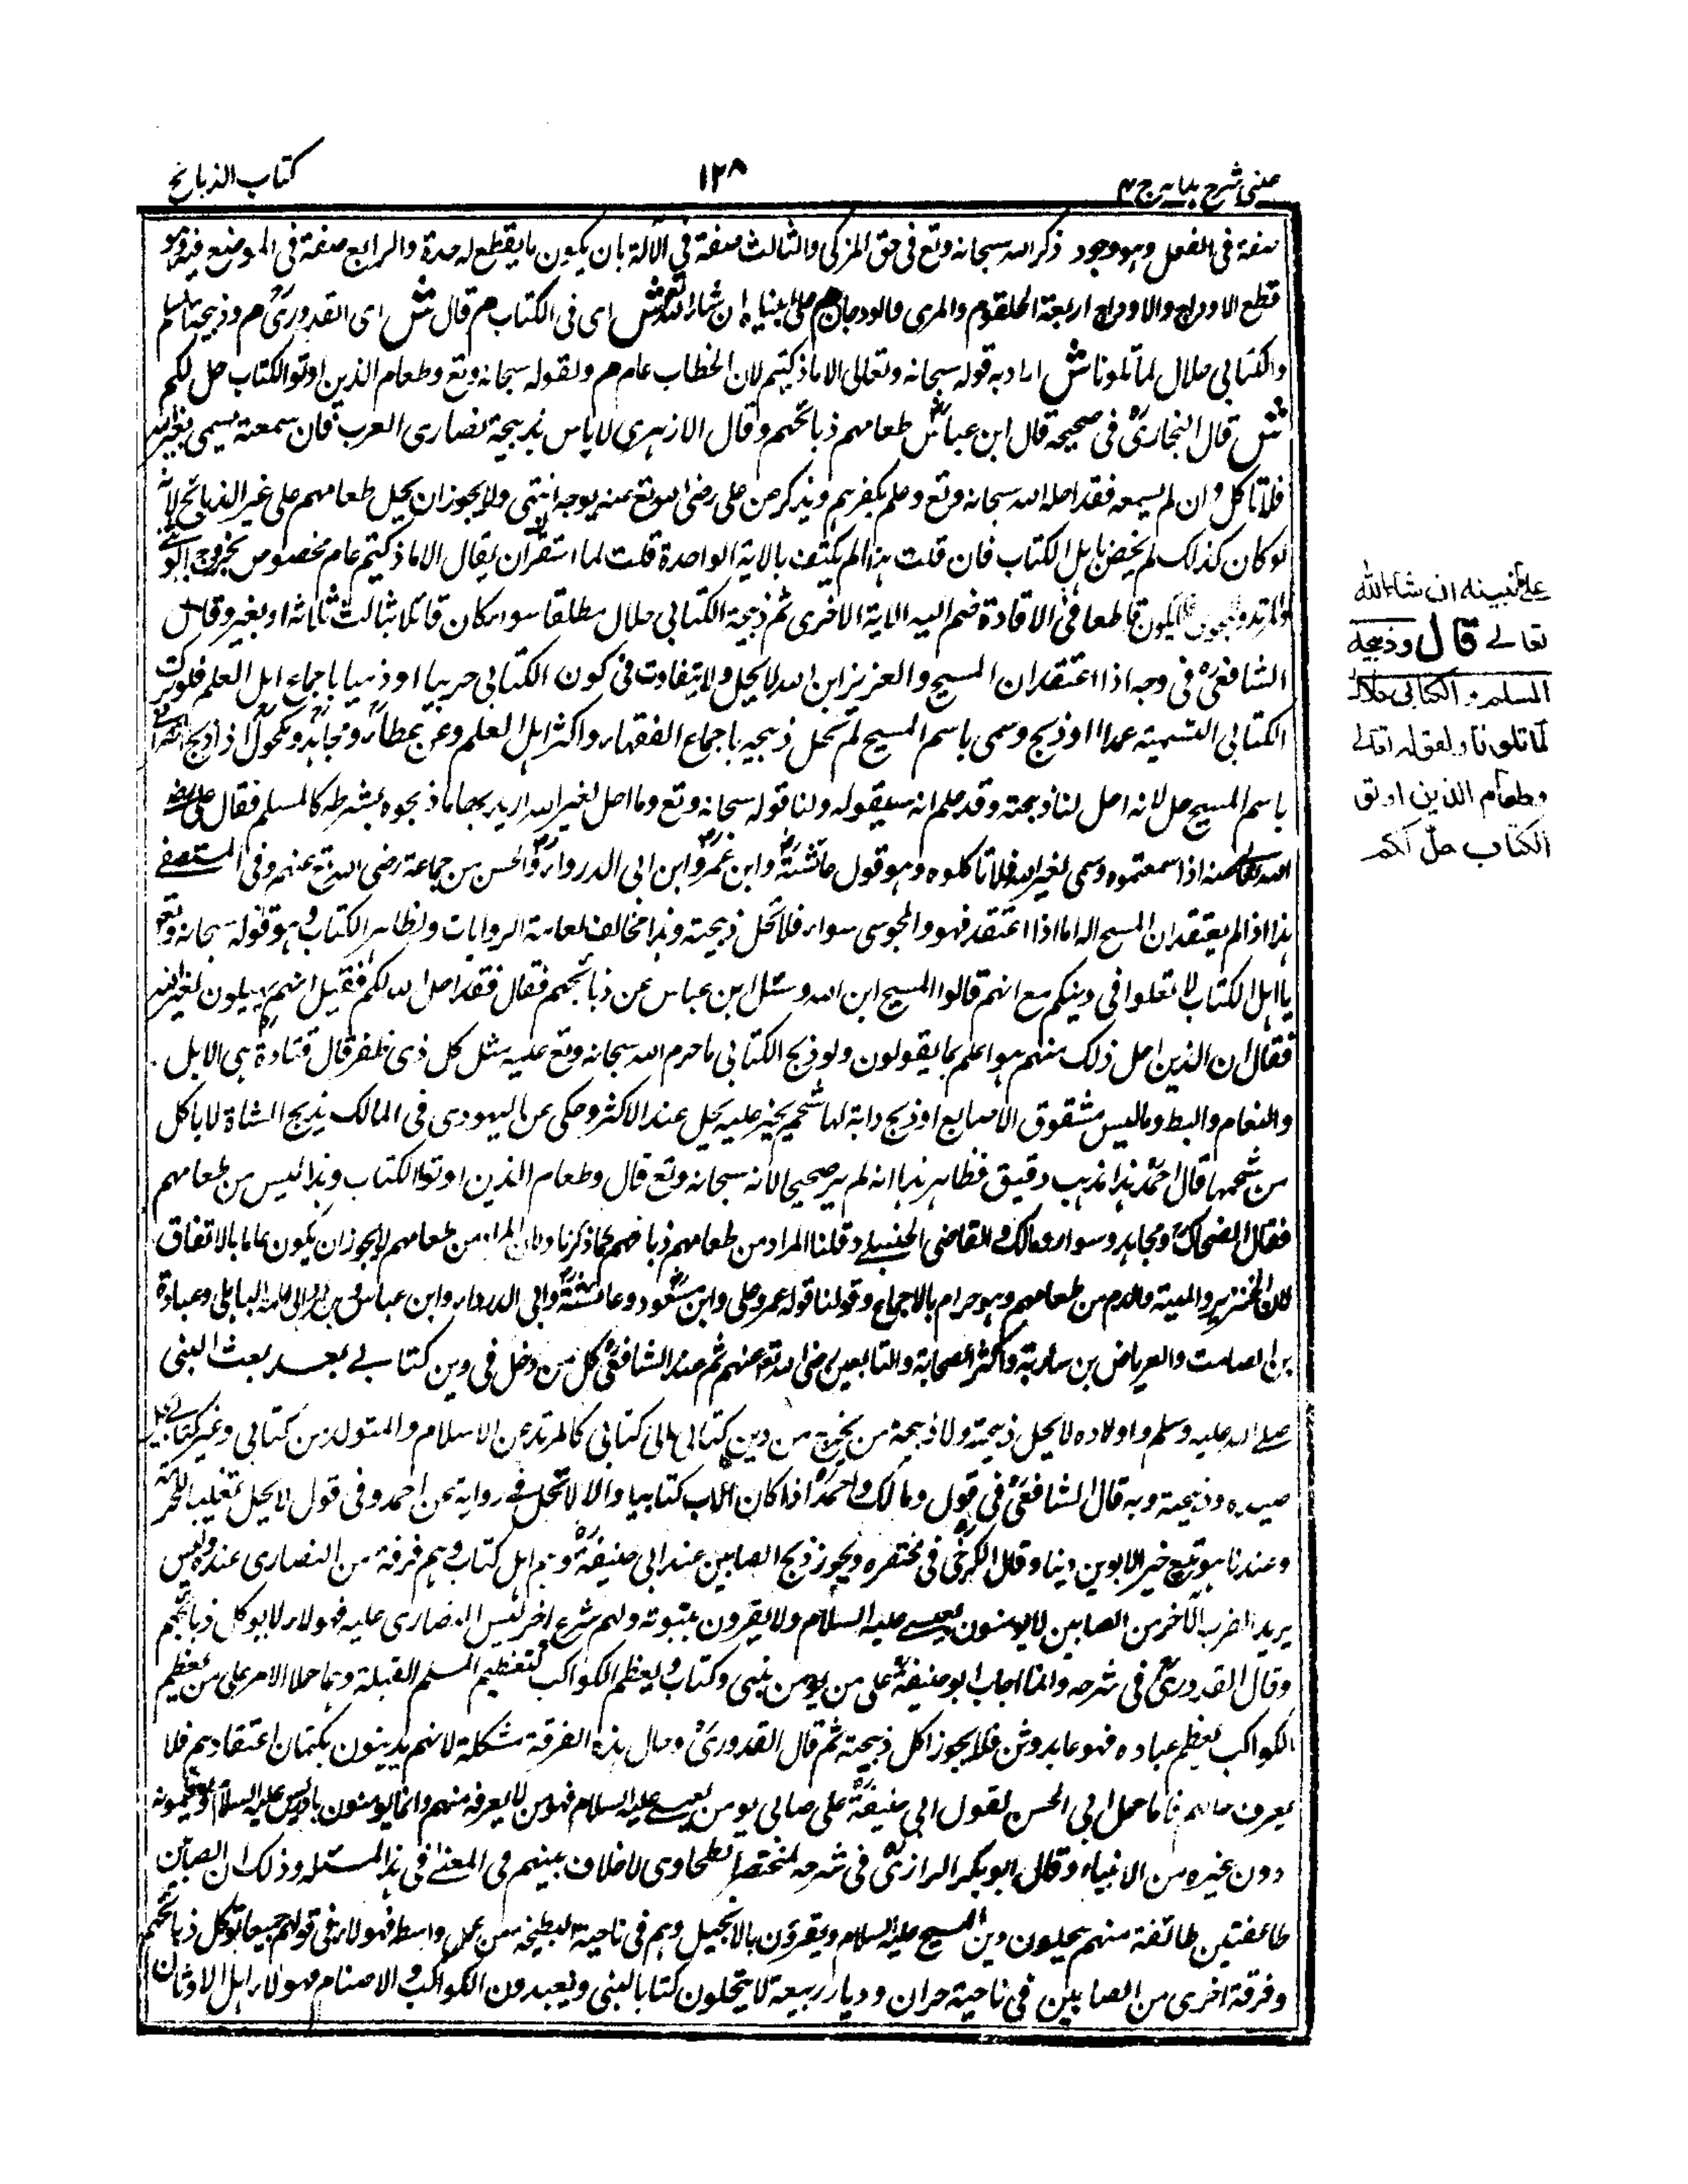 عینی شرح ہدایہ ج ۴
۱۲۸
کتاب الذبائح
صفة فی الفعل وہو وجود ذکر اللہ سبحانہ وتع فی حق المزکی والثالث صفة فی الآلة بان یکون ما یقطع لہ حدة والرابع صفة فی الموضع فیہ وہو
قطع الاوداج والاوداج اربعة الحلقوم والمری والودجان م علی ما نبینہ ان شاء اللہ تع ش ای فی الکتاب م قال ش ای القدوری م وذبیحة المسلم
والکتابی حلال لما تلونا ش اراد بہ قولہ سبحانہ وتعالی الا ما ذکیتم لان الخطاب عام م ولقولہ سبحانہ وتع وطعام الذین اوتوا الکتاب حل لکم
ش قال البخاری فی صحیحہ قال ابن عباس طعامہم ذبائحہم وقال الازہری لا باس بذبیحة نصاری العرب فان سمعتہ یسمی بغیر اللہ
فلا تاکل وان لم یسمعہ فقد احلہ اللہ سبحانہ وتع وعلم بکفرہم ویذکر عن علی رضی اللہ تع عنہ بوجہ انتہی ولا یجوز ان یحیل طعامہم علی غیر الذبائح لانہ
لو کان کذلک لم یخص باہل الکتاب فان قلت ہذا لم یکتف بالایة الواحدة قلت لما استقر ان یقال الا ما ذکیتم عام مخصوص بخروج الوثنی
والمرتد والمجوس فلا یکون قاطعا فی الافادة ضم الیہ الایة الاخری ثم ذبیحة الکتابی حلال مطلقا سواء کان قائلا بثالث ثلاثة او بغیرہ وقال
الشافعی فی وجہ اذا اعتقد ان المسیح والعزیز ابن اللہ لا یحل ولا یتفاوت فی کون الکتابی حربیا او ذمیا باجماع اہل العلم فلو ترک
الکتابی التسمیة عمدا او ذبح وسمی باسم المسیح لم تحل ذبیحہ باجماع الفقہاء واکثر اہل العلم وعن عطاء ومجاہد ومکحول اذا ذبح النصرانی
باسم المسیح حل لانہ احل لنا ذبیحتہ وقد علم انہ سیقولہ ولنا قولہ سبحانہ وتع وما اہل لغیر اللہ ارید بہا ما ذبحوہ بشرطہ کالمسلم فقال علی رضی
اللہ تعالی عنہ اذا سمعتموہ وسمی لغیر اللہ فلا تاکلوہ وہو قول عائشة وابن عمر وابن ابی الدرداء والحسن من جماعة رضی اللہ تع عنہم وفی المستصفی
ہذا اذا لم یعتقد ان المسیح الہ اما اذا اعتقد فہو والمجوسی سواء فلا تحل ذبیحتہ وہذا مخالف لعامة الروایات ولظاہر الکتاب وہو قولہ سبحانہ وتع
یا اہل الکتاب لا تغلوا فی دینکم مع انہم قالوا المسیح ابن اللہ وسئل ابن عباس عن ذبائحہم فقال فقد احل اللہ لکم فقیل انہم یہلون لغیر اللہ
فقال ان الذین احل ذلک منہم ہو اعلم بما یقولون ولو ذبح الکتابی ما حرم اللہ سبحانہ وتع علیہ مثل کل ذی ظفر قال قتادة ہی الابل
والنعام والبط وما لیس مشقوق الاصابع او ذبح دابة لہا شحم یحرم علیہ یحل عند الاکثر وحکی عن الیہودی فی المالک یذبح الشاة لا یاکل
من شحمہا قال احمد ہذا مذہب دقیق فظاہر ہذا انہ لم یر صحیحا لانہ سبحانہ وتع قال وطعام الذین اوتوا الکتاب وہذا لیس من طعامہم
فقال الضحاک ومجاہد وسوار ومالک والقاضی الحنبلی وقلنا المراد من طعامہم ذبائحہم کما ذکرنا ولان المراد من طعامہم لا یجوز ان یکون عاما بالاتفاق
لان الخنزیر والمیتة والدم من طعامہم وہو حرام بالاجماع وقولنا قولہ عمر وعلی وابن مسعود وعائشة وابی الدرداء وابن عباس وابی امامة الباہلی وعبادة
بن الصامت والعرباض بن ساریة واکثر الصحابة والتابعین رضی اللہ تع عنہم ثم عند الشافعی کل من دخل فی دین کتابی بعد بعث النبی
صلی اللہ علیہ وسلم واولادہ لا یحل ذبیحتہ ولا ذبیحة من یخرج من دین کتابی الی کتابی کالمرتد عن الاسلام والمتولد من کتابی وغیر کتابی یحل
صیدہ وذبیحتہ وبہ قال الشافعی فی قول ومالک واحمد اذا کان الاب کتابیا والا لا تحل فی روایة عن احمد وفی قول لا یحل تغلیبا للحرمة
وعندنا ہو یتبع خیر الابوین دینا وقال الکرخی فی مختصرہ ویجوز ذبح الصابین عند ابی حنیفة وہم اہل کتاب وہم فرقة من النصاری عندہ ولیس
یرید الضرب الآخر من الصابین لا یؤمنون بعیسی علیہ السلام ولا یقرون بنبوتہ ولہم شرع اخر لیس النصاری علیہ فہولاء لا یوکل ذبائحہم
وقال القدوری فی شرحہ وانما اجاب ابو حنیفة علی من یؤمن بنبی وکتاب ویعظم الکواکب کتعظیم المسلم القبلة وہما حملا الامر علی من یعظم
الکواکب تعظیم عبادہ فہو عابد وثن فلا یجوز اکل ذبیحتہ ثم قال القدوری وحال ہذہ الفرقة مشکلة لانہم یدینون بکتمان اعتقادہم فلا
یعرف حالہم فاما حمل ابی الحسن لقول ابی حنیفة علی صابی یومن بعیسی علیہ السلام فہو من لا یعرفہ منہم وانما یومنون بادریس علیہ السلام ویعظمونہ
دون غیرہ من الانبیاء وقال ابو بکر الرازی فی شرحہ لمختصر الطحاوی لا خلاف بینہم فی المعنی فی ہذا المسئلہ وذلک ان الصابین
طائفتین طائفة منہم یحلیون دین المسیح علیہ السلام ویقرؤن بالانجیل وہم فی ناحیة البطیحة من عمل واسط فہولاء فی قولہم جمیعا توکل ذبائحہم
وفرقة اخری من الصابین فی ناحیة حران ودیار ربیعة لا یتحلون کتابا لنبی ویعبدون الکواکب والاصنام فہولاء اہل الاوثان
علی نبینہ ان شاء اللہ
تعالے قال وذبیحة
المسلم و الکتابی حلال
لما تلونا ولقولہ تعالی
وطعام الذین اوتوا
الکتاب حل لکم